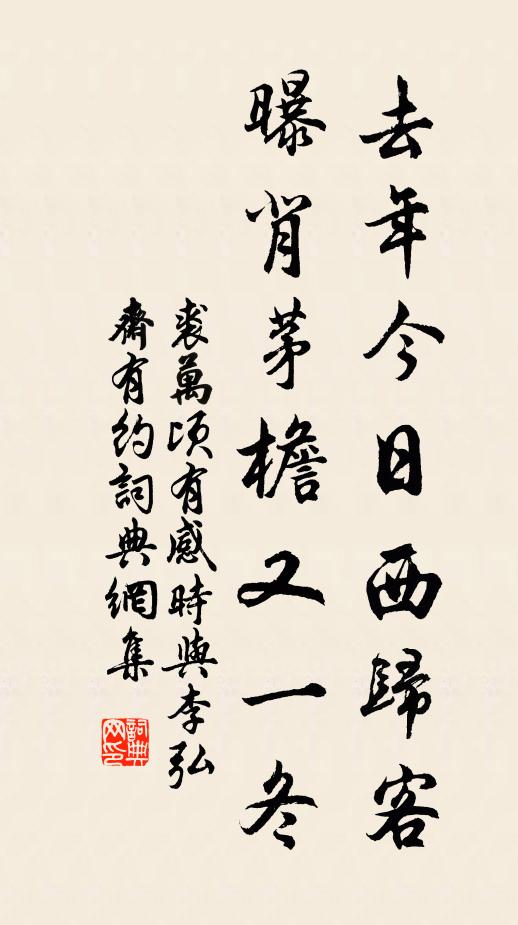 去年今日西歸客
曝背茅檐又一冬
裘萬頃有感時與李弘
齋有約詞典網集
詞典
网印